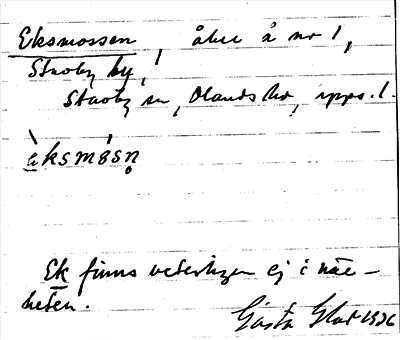 Eksmossen, åker å nr 1,
Stavby by,
Stavby sn, Olands hd, Upps. l.
èksmósn̥
Ek finns veterligen ej i när-
heten.
Gösta 1926